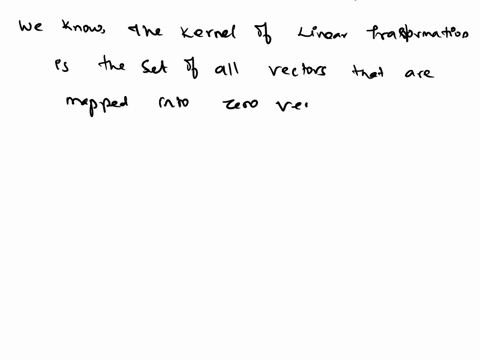 We know, the kernel of Linear Transformation
is the set of all vectors that are
mapped into zero vec